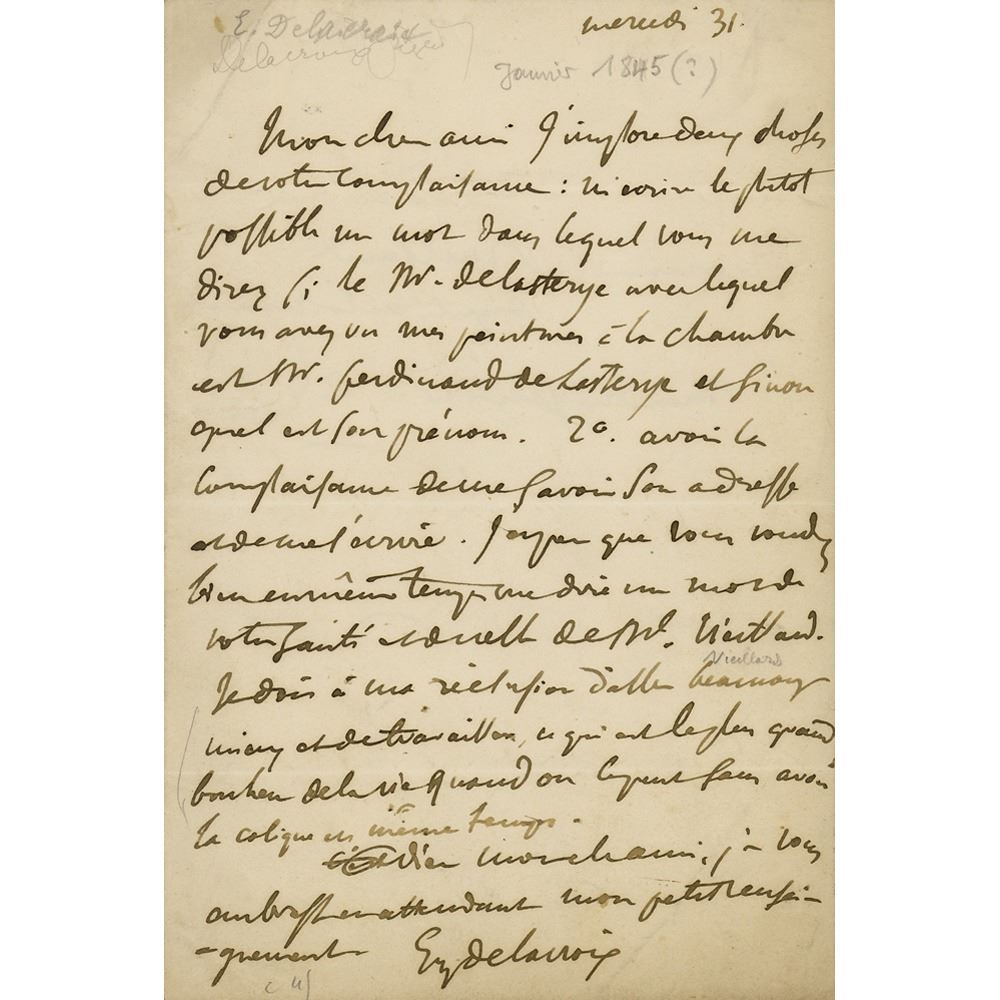 E. Delacroix
Delacroix
mercredi 31.
Janvier 1845 (?)
Mon cher ami J'implore deux choses
de votre complaisance : m'écrire le plutot
possible un mot dans lequel vous me
direz si le Mr. de Lasterye avec lequel
vous avez vu mes peintures à la chambre
est Mr. ferdinand de Lasterye et sinon
quel est son prénom. 2o. avoir la
complaisance de me savoir son adresse
et de me l'écrire. J'espère que vous voudrez
bien en même temps me dire un mot de
votre santé et de celle de Me. Vieillard.
Vieillard
Je dois à ma réclusion d'aller beaucoup
mieux et de travailler, ce qui est le plus grand
bonheur de la vie quand on le peut sans avoir
la colique en même temps.
Adieu mon cher ami, je vous
embrasse en attendant mon petit rensei-
-gnement Eug Delacroix